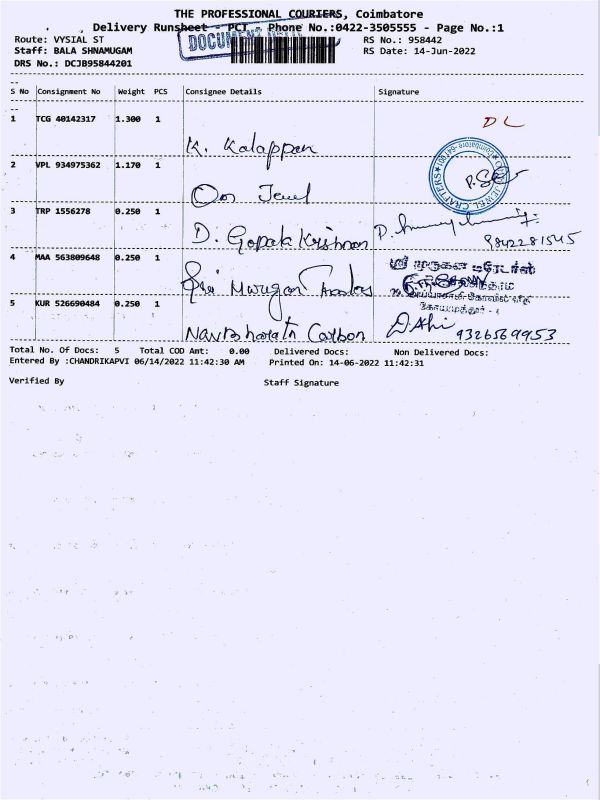 THE PROFESSIONAL COURIERS, Coimbatore
Delivery Runsheet - PCT , Phone No.:0422-3505555 - Page No.:1
Route: VYSIAL ST
RS No.: 958442
Staff: BALA SHNAMUGAM
RS Date: 14-Jun-2022
DRS No.: DCJB95844201
DOCUMENT
S No Consignment No Weight PCS Consignee Details Signature
1 TCG 40142317 1.300 1
K. Kalappan
DL
2 VPL 934975362 1.170 1
Om Jewel
JEWEL CRAFTERS
3 TRP 1556278 0.250 1
D. Gopala Krishnan
9842281545
4 MAA 563809648 0.250 1
Sri Murugan Traders
ஸ்ரீ முருகன் டிரேடர்ஸ்
கோயமுத்தூர் - 1
5 KUR 526690484 0.250 1
Navbharath Carbon
9326569953
Total No. Of Docs: 5 Total COD Amt: 0.00 Delivered Docs: Non Delivered Docs:
Entered By :CHANDRIKAPVI 06/14/2022 11:42:30 AM Printed On: 14-06-2022 11:42:31
Verified By Staff Signature